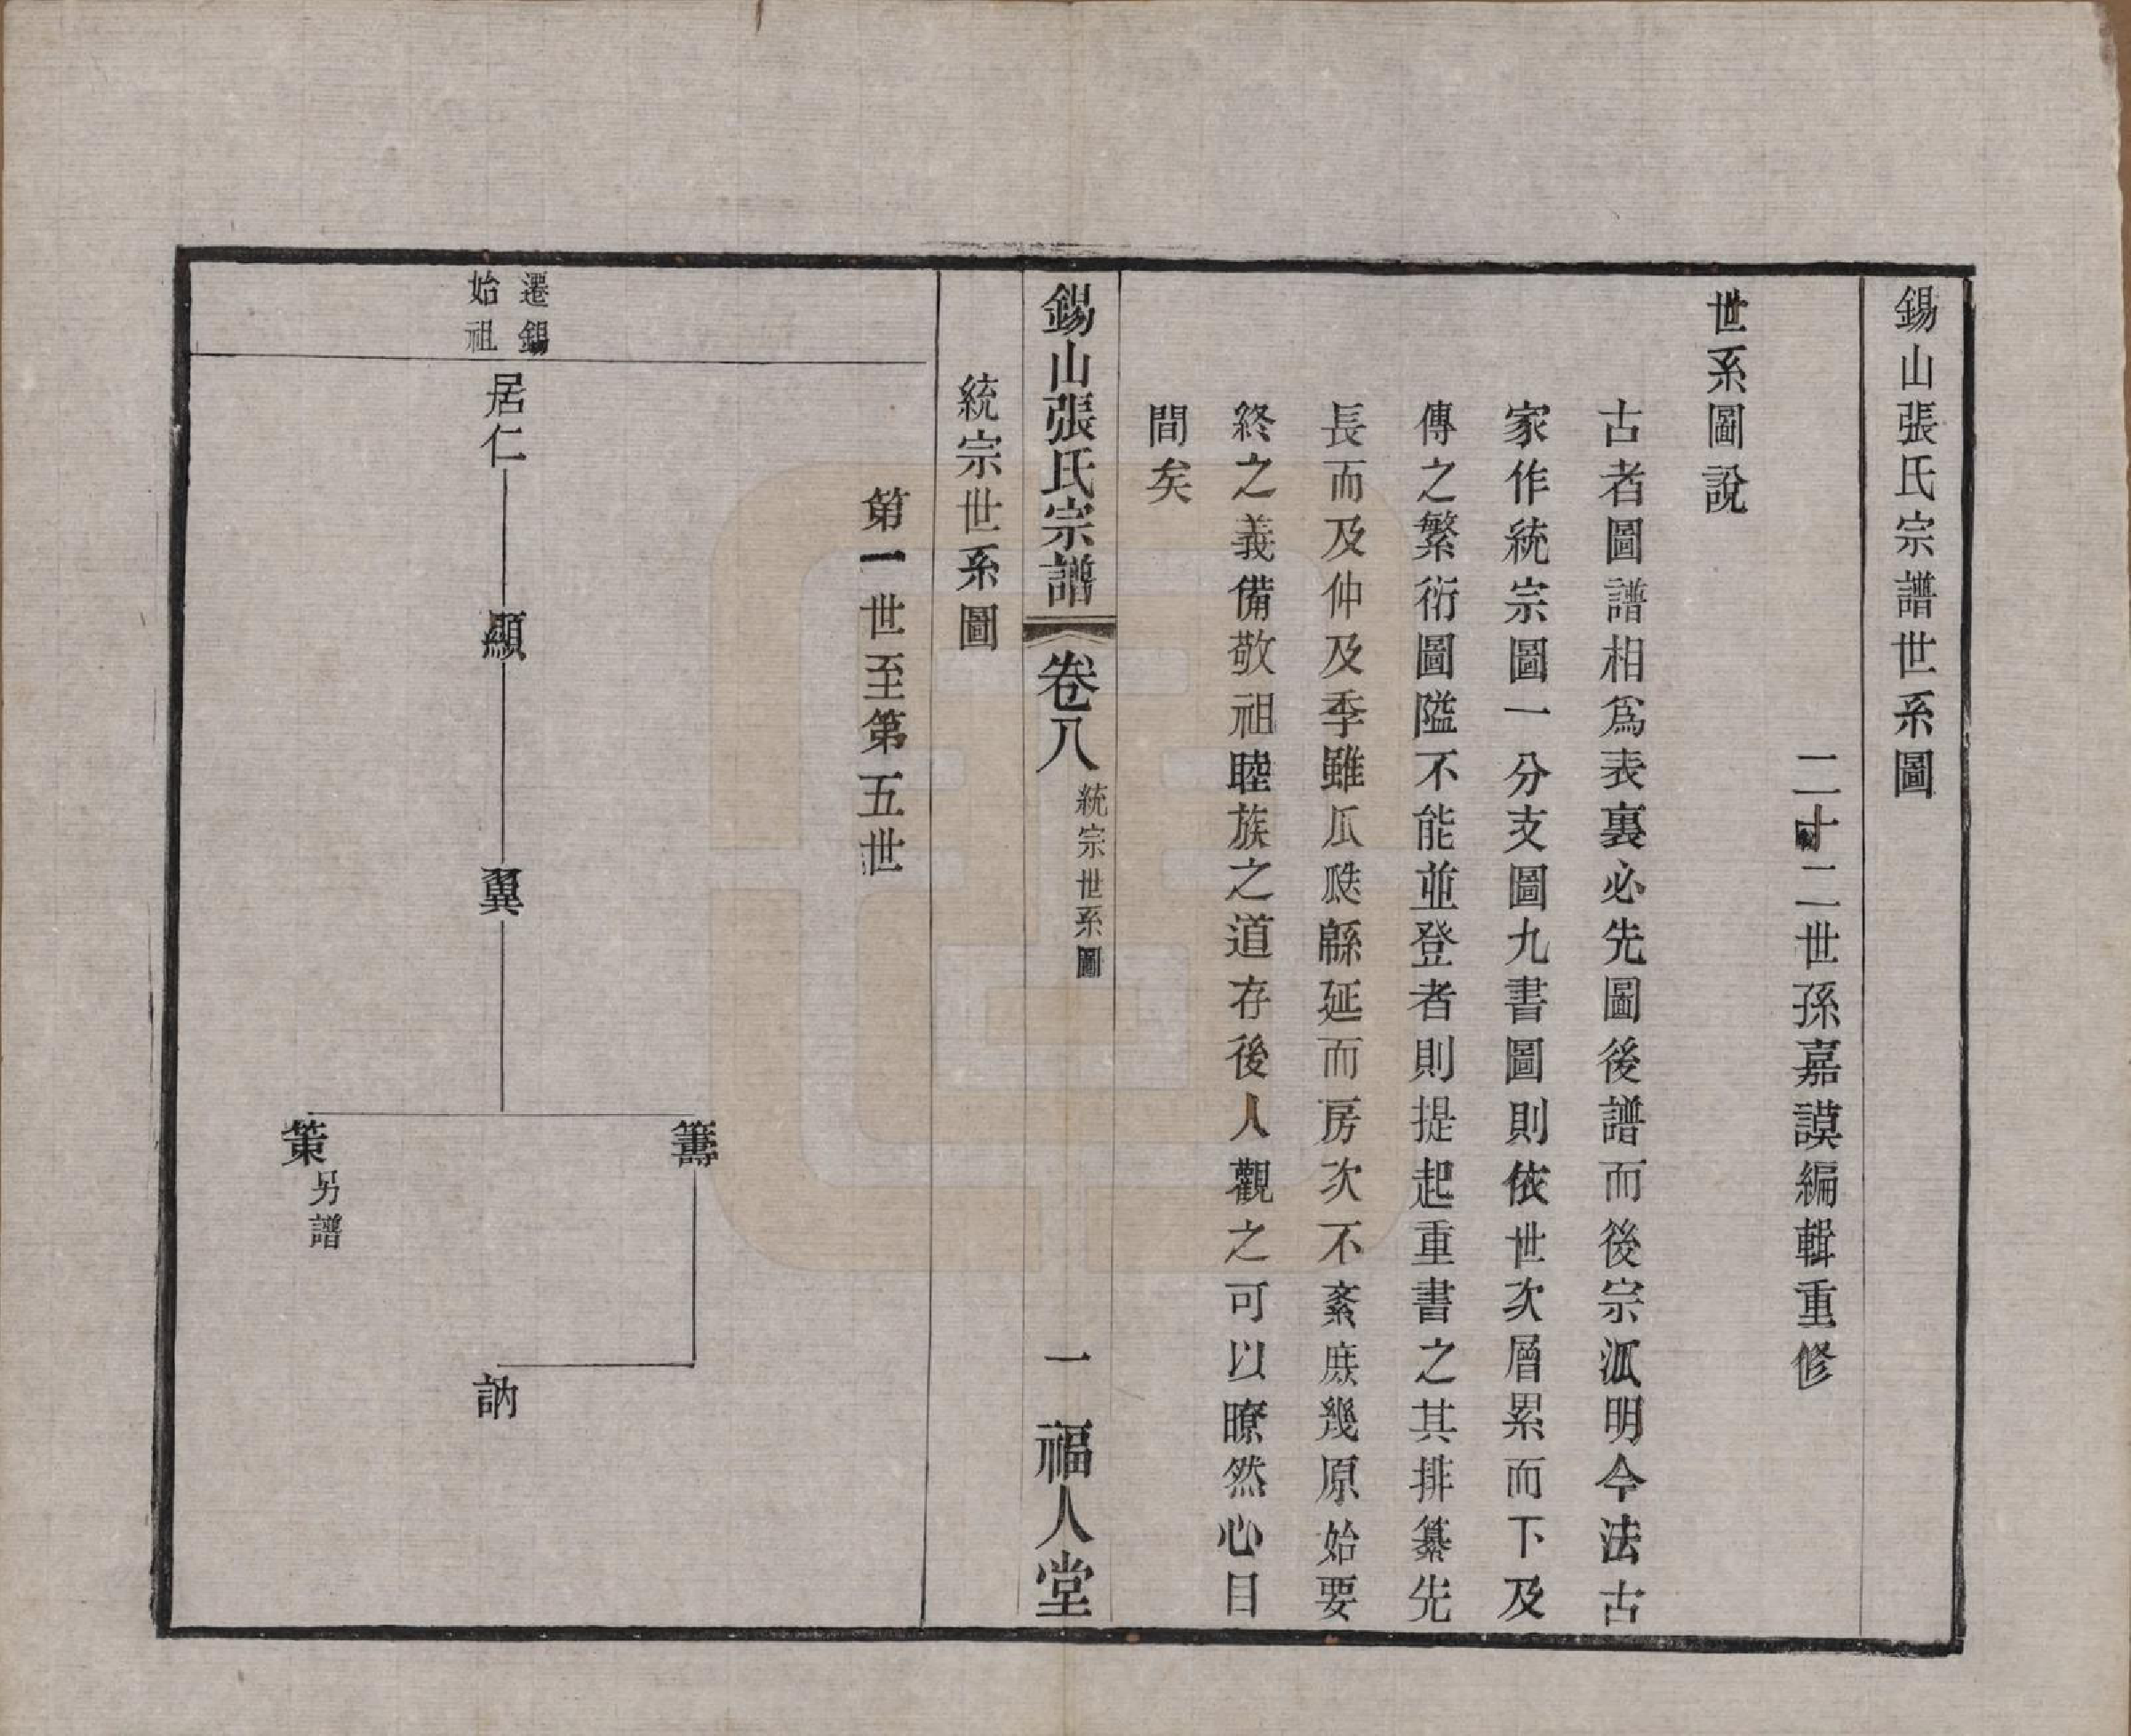 錫山張氏宗譜世系圖
二十二世孫嘉謨編輯重修
世系圖說
古者圖譜相爲表裏必先圖後譜而後宗派明今法古
家作統宗圖一分支圖九書圖則依世次層累而下及
傳之繁衍圖隘不能並登者則提起重書之其排纂先
長而及仲及季雖瓜瓞緜延而房次不紊庶幾原始要
終之義備敬祖睦族之道存後人觀之可以瞭然心目
間矣
錫山張氏宗譜 卷八 統宗世系圖 一 福人堂
統宗世系圖
第一世至第五世
遷錫
始祖
居仁
顯
翼
籌
策 另譜
訥